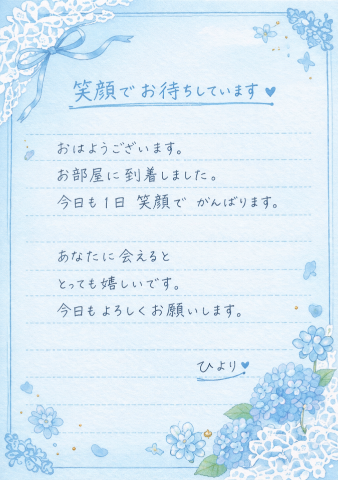 笑顔でお待ちしています♥
おはようございます。
お部屋に到着しました。
今日も1日 笑顔で がんばります。
あなたに会えると
とっても嬉しいです。
今日もよろしくお願いします。
ひより♥